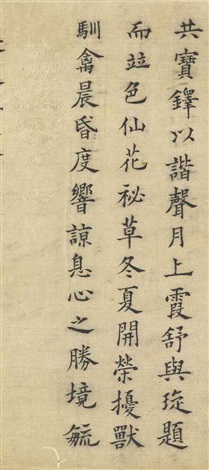 共寶鐸以諧聲月上霞舒與琁題
而竝色仙花祕草冬夏開榮擾獸
馴禽晨昏度響諒息心之勝境毓